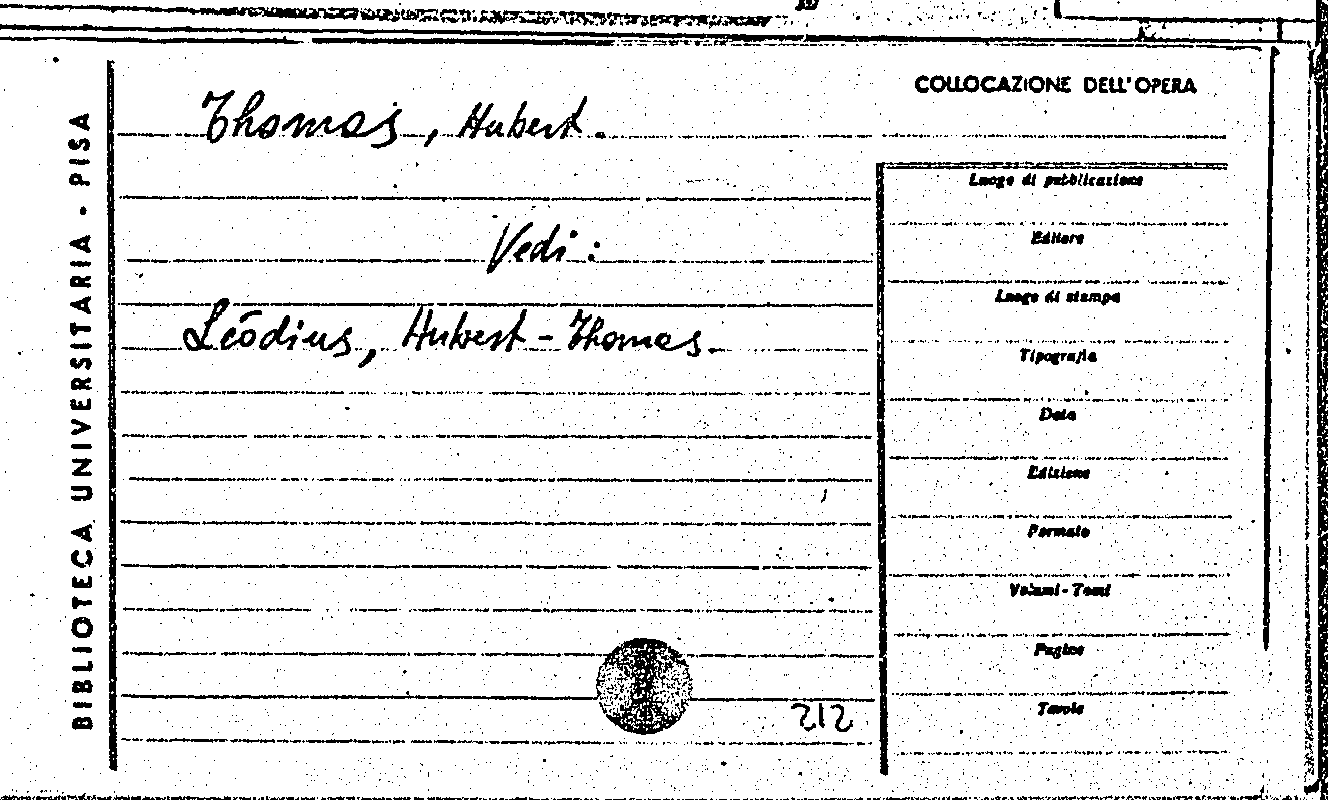 BIBLIOTECA UNIVERSITARIA - PISA
Thomas, Hubert.
Vedi:
Leōdius, Hubert-Thomas.
212
COLLOCAZIONE DELL'OPERA
Luogo di pubblicazione
Editore
Luogo di stampa
Tipografia
Data
Edizione
Formato
Volumi - Tomi
Pagine
Tavole